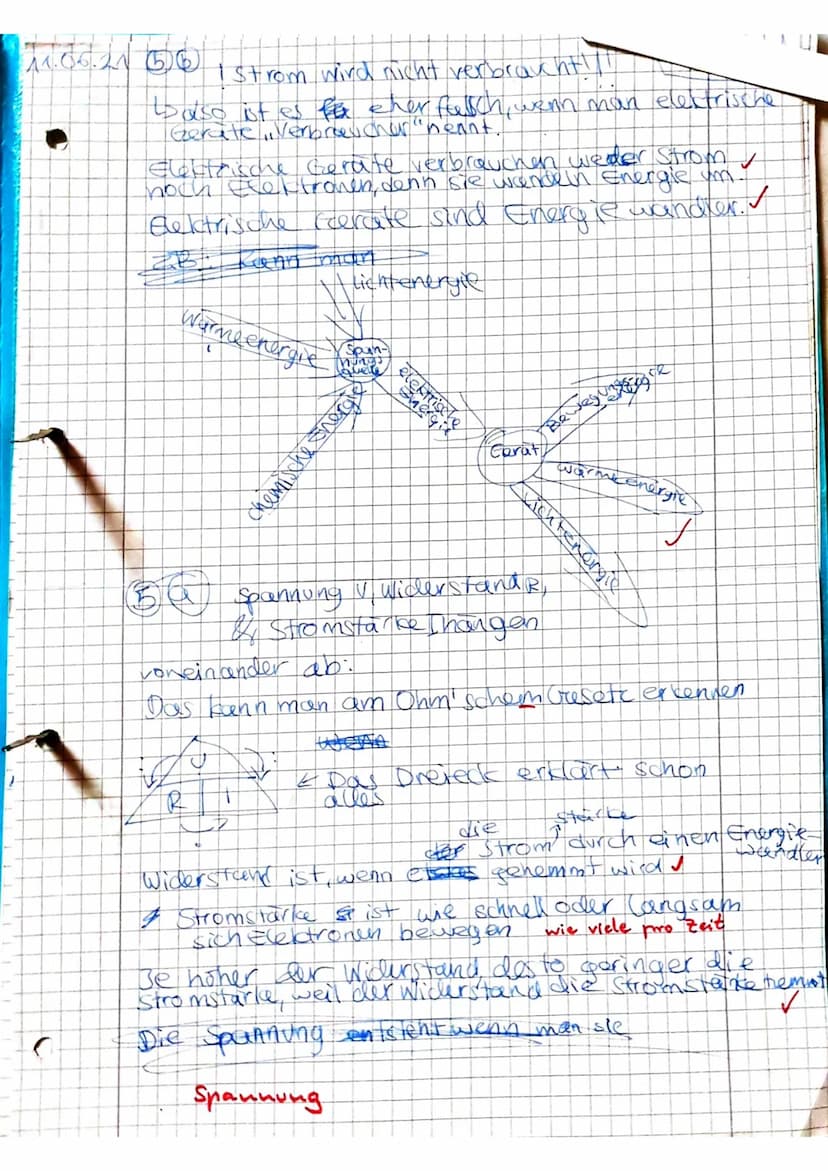 11.06.21 5 6 ! Strom wird nicht verbraucht!!!
↳ also ist es eher falsch, wenn man elektrische
Geräte „Verbraucher" nennt.
Elektrische Geräte verbrauchen weder Strom ✓
noch Elektronen, denn sie wandeln Energie um.
Elektrische Geräte sind Energiewandler. ✓
z.B.: Kann man
Lichtenergie
Wärmeenergie
Span-
nungs
quelle
elektrische
Energie
chemische Energie
Bewegungs
energie
Gerät
Wärmeenergie
✓
Lichtenergie
5 a Spannung U, Widerstand R,
& Stromstärke I hängen
voneinander ab:
Das kann man am Ohm'schem Gesetz erkennen
wenn
U
R I
← Das Dreieck erklärt schon
alles
die stärke
der Strom durch einen Energie-
wandler
Widerstand ist, wenn gehemmt wird ✓
Stromstärke ist wie schnell oder langsam
sich Elektronen bewegen wie viele pro Zeit
Je höher der Widerstand, desto geringer die
Stromstärke, weil der Widerstand die Stromstärke hemmt
✓
Die Spannung entsteht wenn man sie
Spannung